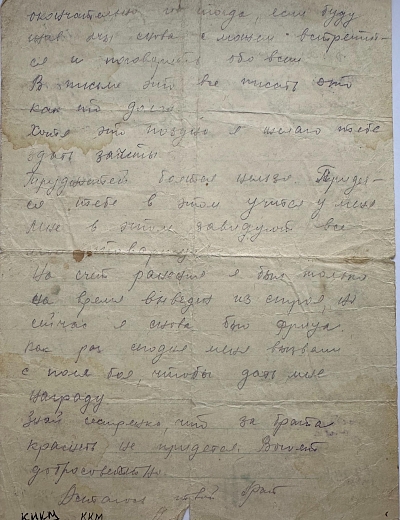 окончательно но тогда, если буду
снова с можем встретит-
ся и поговорить обо всем
В письме это все писать ото
как то долго
Хотя это поздно я желаю тебе
сдать зачеты
Трудностей боятся нельзя. Придет-
ся тебе в этом учится у меня
Мне в этом завидуют все
На счет ранения я был только
на время выведен из строя, но
сейчас я снова бью фрица.
Как раз сегодня меня вызвали
с поля боя, чтобы дать мне
награду
Знай сестренка, что за брата
краснеть не придется. Воюет
добросовестно.
Остаюсь твой брат
ККМ ККМ